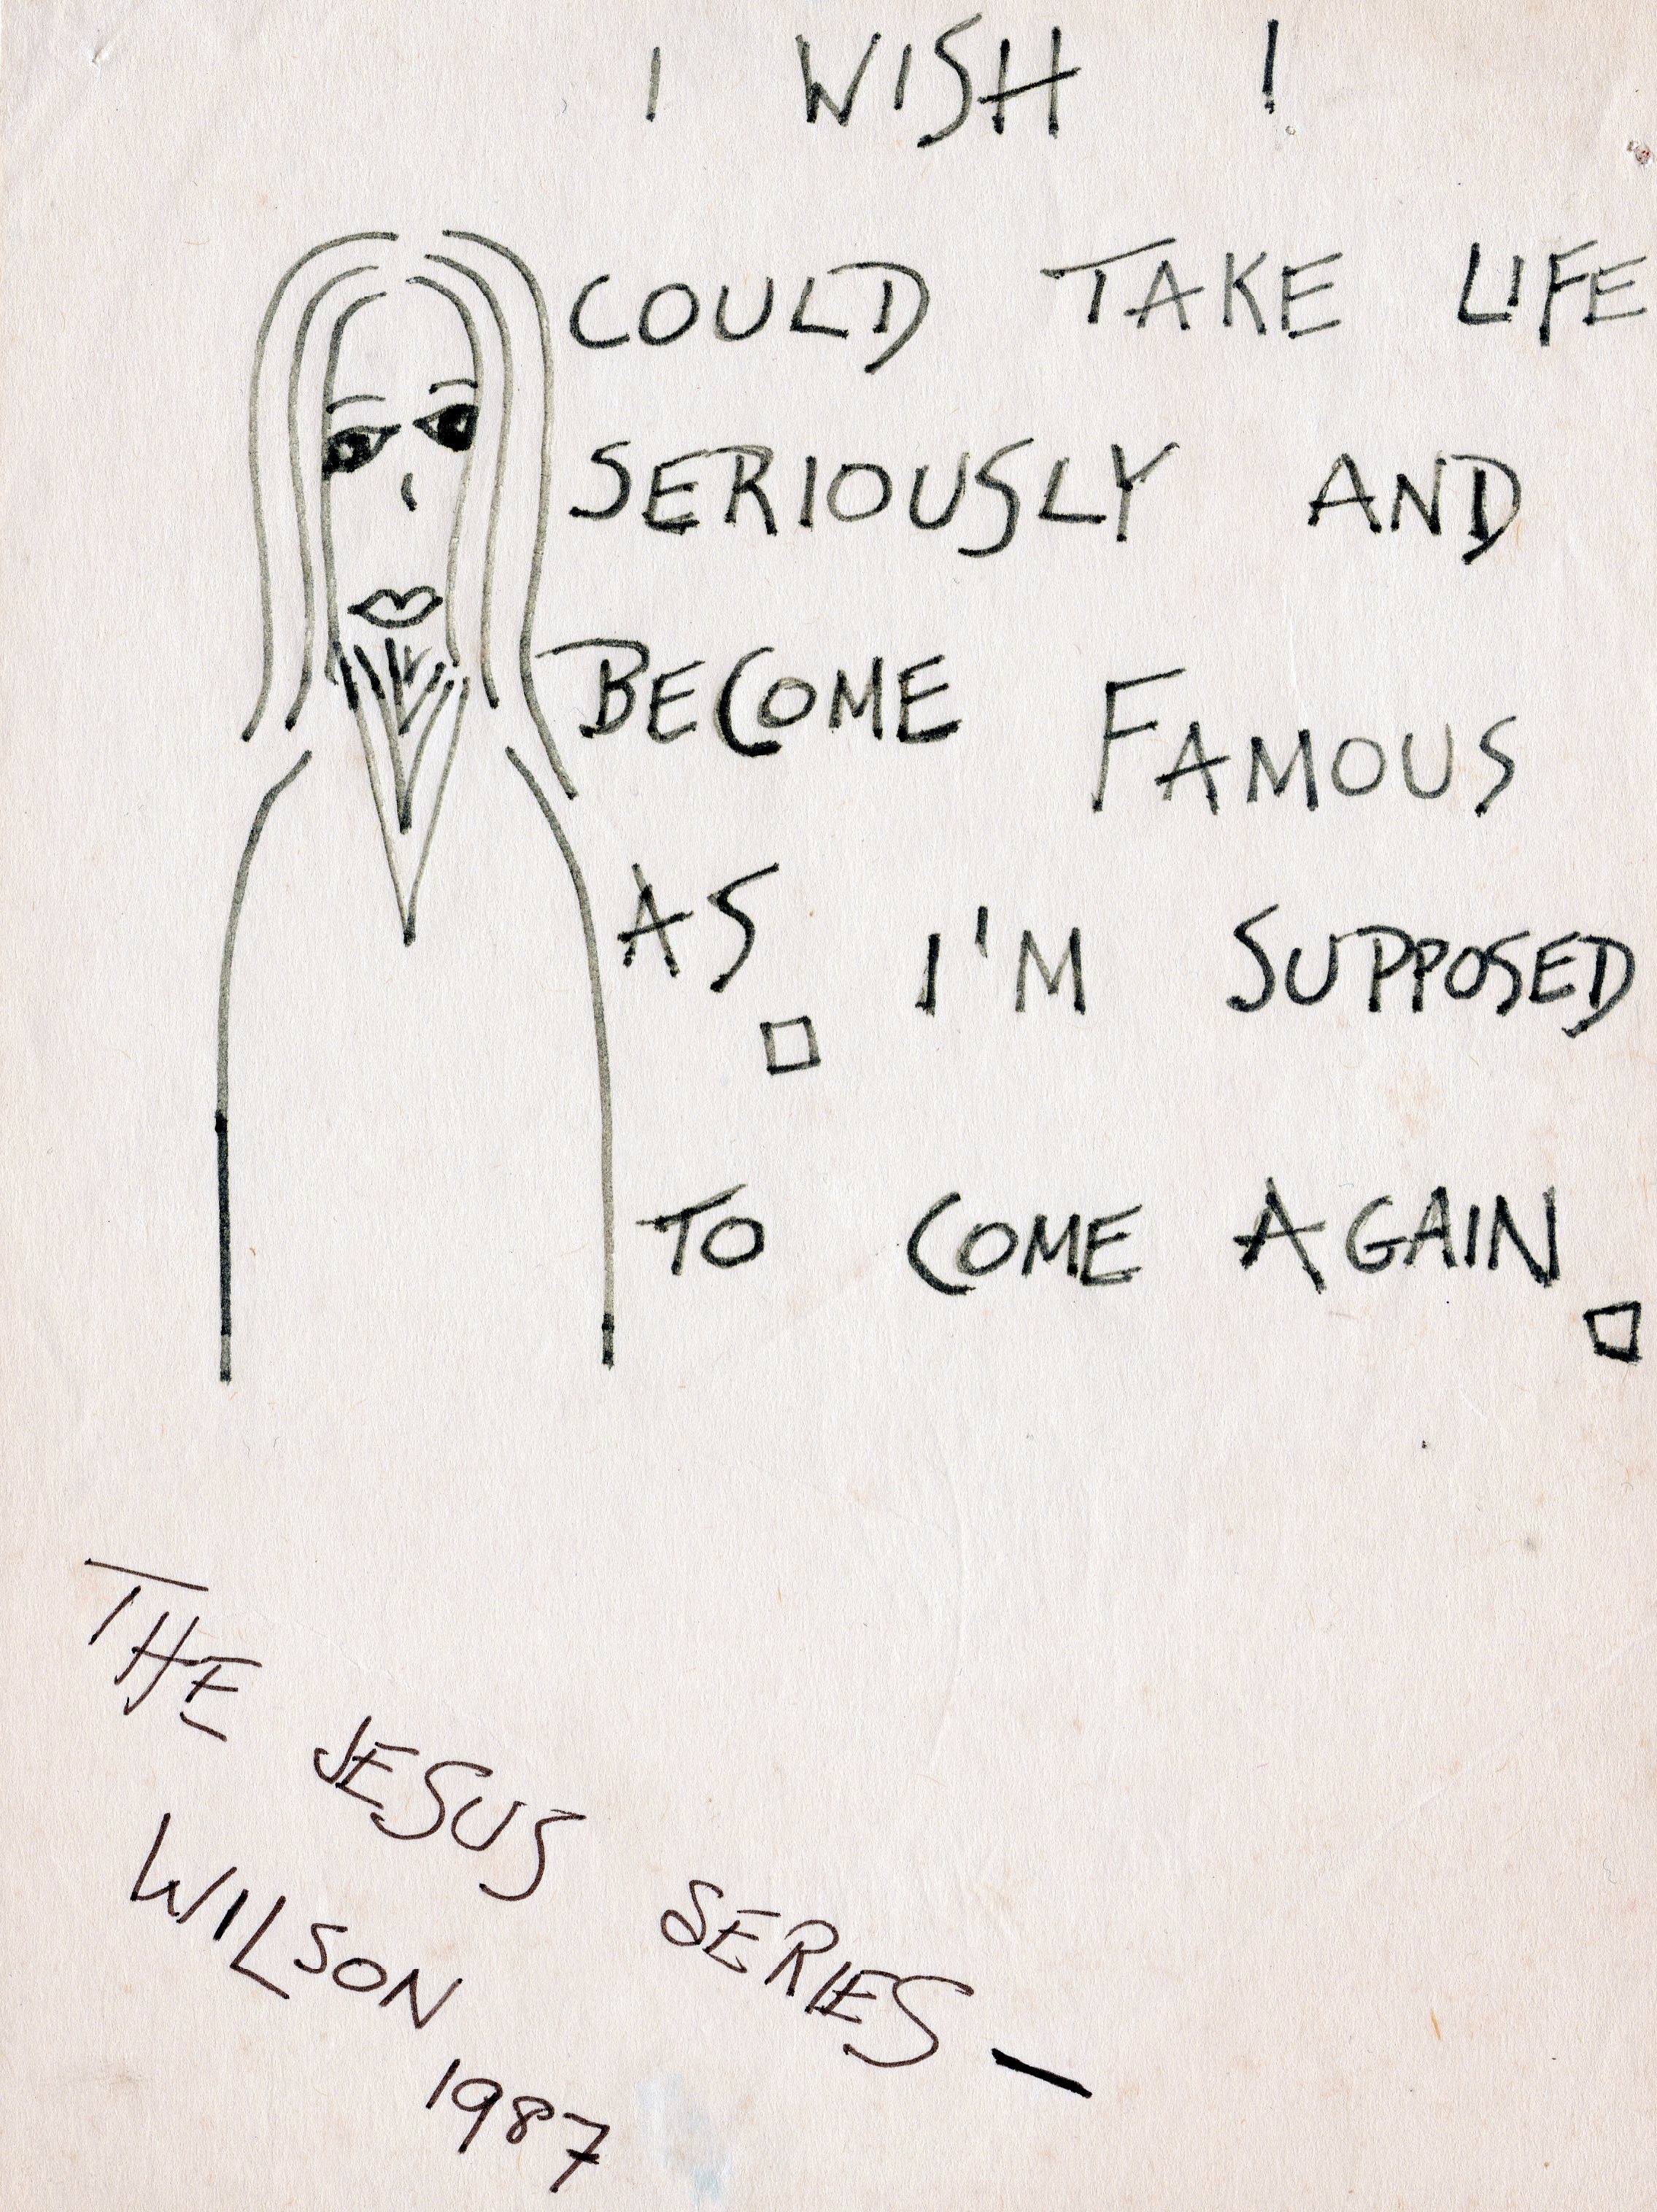 I WISH !
COULD TAKE LIFE
SERIOUSLY AND
BECOME FAMOUS
AS. I'M SUPPOSED
TO COME AGAIN.
THE JESUS SERIES —
WILSON
1987